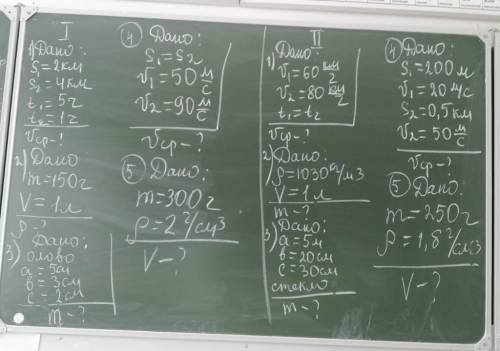 I
1) Дано:
S₁=2км
S₂=4км
t₁=5г
t₂=1г
Vср-?
2) Дано:
m=150г
V=1л
ρ-?
3) Дано:
олово
a=5см
b=3см
c=2см
m-?
④ Дано:
S₁=S₂
V₁=50 м/с
V₂=90 м/с
Vср-?
⑤ Дано:
m=300г
ρ=2г/см3
V-?
II
1) Дано:
V₁=60 км/г
V₂=80 км/г
t₁=t₂
Vср-?
2) Дано:
ρ=1030кг/м3
V=1л
m-?
3) Дано:
a=5м
b=20см
c=30см
стекло
m-?
④ Дано:
S₁=200м
V₁=20м/с
S₂=0,5км
V₂=50 м/с
Vср-?
⑤ Дано:
m=250г
ρ=1,8г/см3
V-?